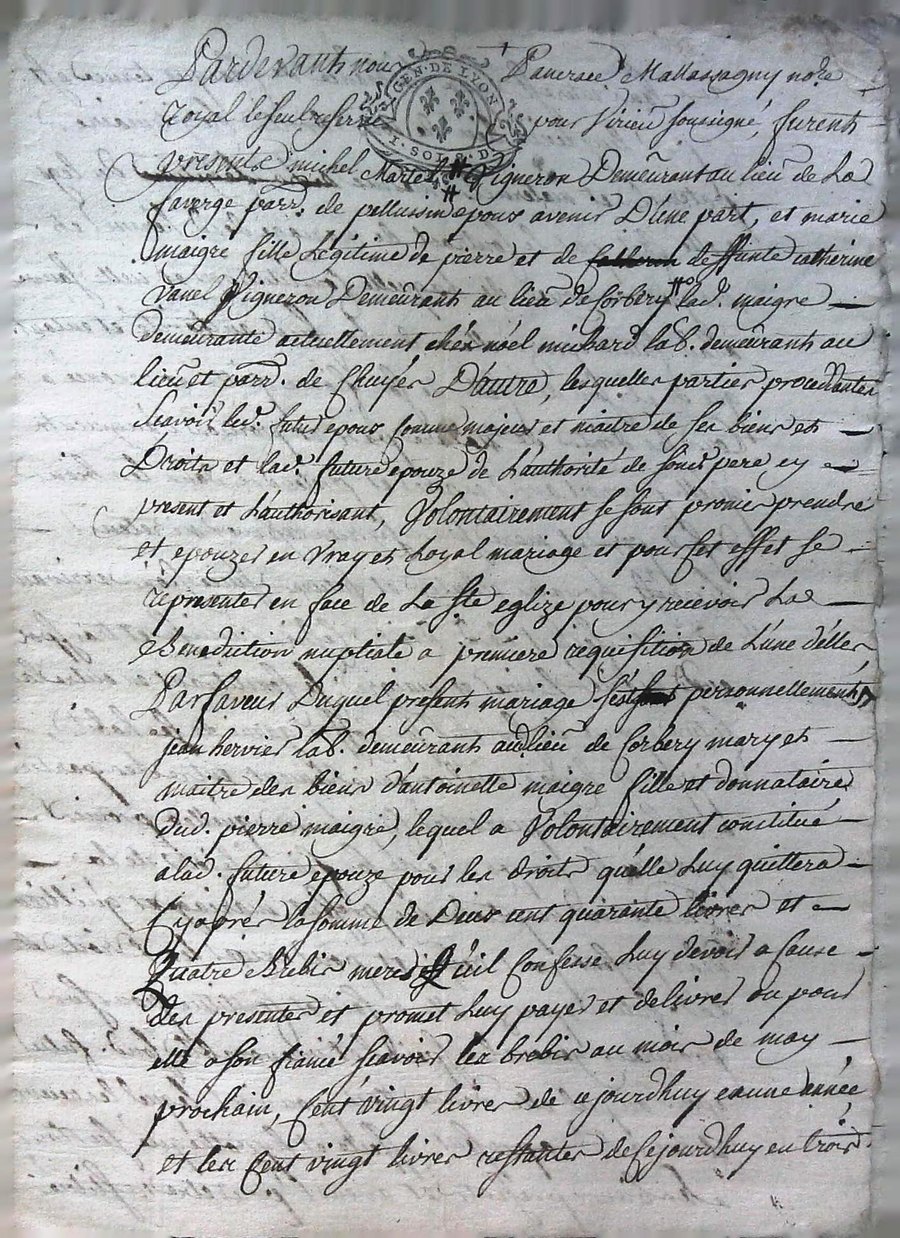 Pardevant nous Pancrace Mallassagny nore
GEN. DE LYON
royal le seul reservé pour Virieu soussigné, furent
1. SOL. 
presents michel Martel # Vigneron Demeurant au lieu de La
faverge parr. de pellussin epoux avenir D'une part, et marie
maigre fille Légitime de pierre et de deffunte catherine
vanel Vigneron Demeurant au lieu de Corbery # lad. maigre
demeurante actuellement chés nöel michard lab. demeurant au
lieu et parr. de Chuyés D'autre, lesquelles parties procedantes
scavoir led. futur epoux comme majeur et maitre de ses biens et
Droits et lad. future epouze de L'authorité de sond. pere cy
present et L'authorisant, Volontairement se sont promis prendre
et epouzer en Vray et Loyal mariage et pour cet effet se
representer en face de La Ste eglize pour y recevoir La
Benediction nuptiale a premiere requisition de L'une d'elles
Parfaveur Duquel present mariage s'est personnellement
jean hervier lab. demeurant audlieu de Corbery mary et
maitre des biens d'antoinette maigre fille et donnataire
dud. pierre maigre, lequel a Volontairement constitué
alad. future epouze pour les droits qu'elle Luy quittera
Cy aprés la somme de Deux cent quarante livres et
Quatre Brebis meres Qu'il Confesse Luy devoir a Cause
des presentes et promet Luy payer et delivrer ou pour
elle a son fiancé scavoir les brebis au mois de may
prochain, Cent vingt livres de cejourdhuy en une année
et les Cent vingt livres restantes de Cejourdhuy en trois